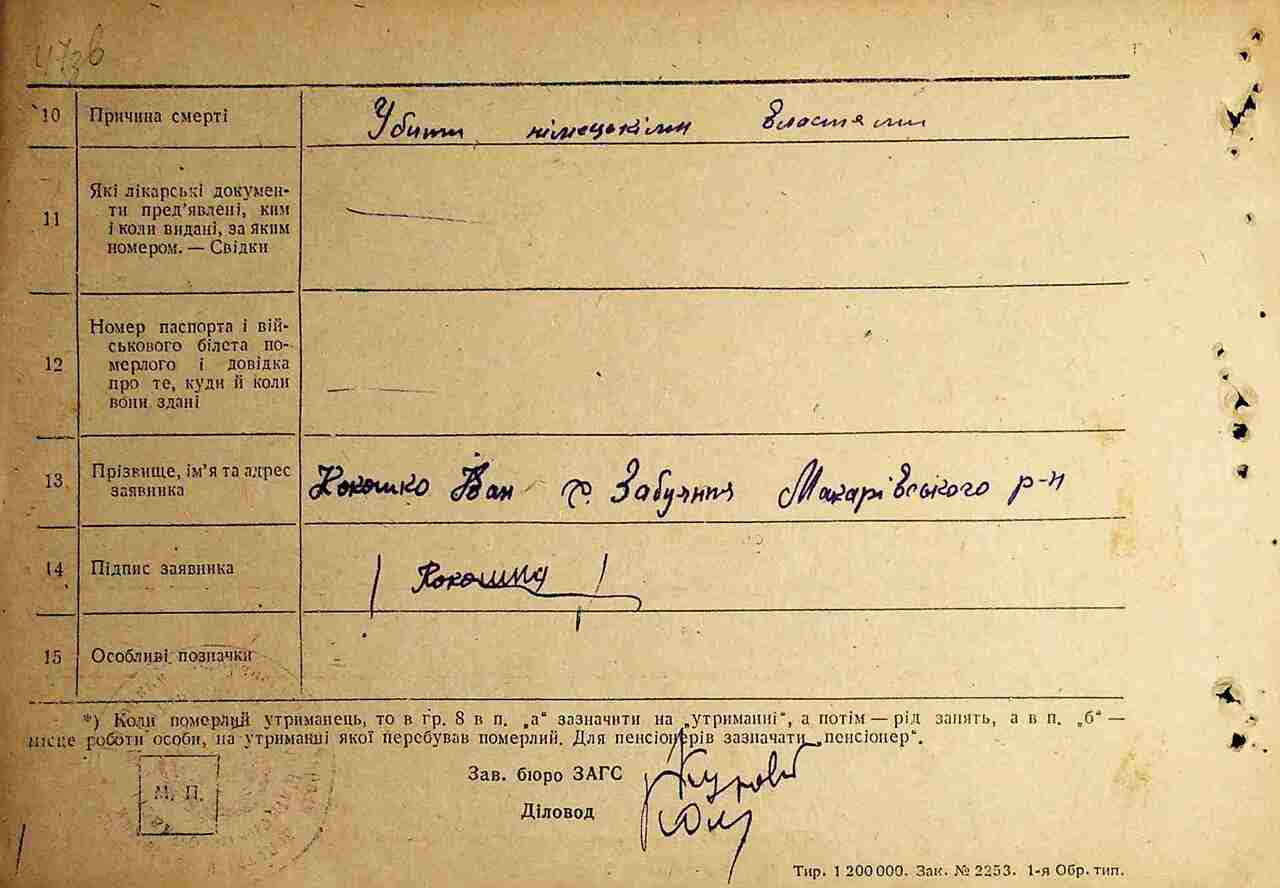 473б
10 Причина смерті Убити німецькіми властями
11 Які лікарські докумен-
ти пред'явлені, ким
і коли видані, за яким
номером. — Свідки
12 Номер паспорта і вій-
ськового білета по-
мерлого і довідка
про те, куди й коли
вони здані
13 Прізвище, ім'я та адрес
заявника Кокошко Іван с. Забуяння Макарівського р-н
14 Підпис заявника Кокошко
15 Особливі позначки
*) Коли померлий утриманець, то в гр. 8 в п. „а" зазначити на „утриманні", а потім — рід занять, а в п. „б" —
місце роботи особи, на утриманні якої перебував померлий. Для пенсіонерів зазначати „пенсіонер".
Зав. бюро ЗАГС
М. П.
Діловод
Тир. 1 200 000. Зак. № 2253. 1-я Обр. тип.